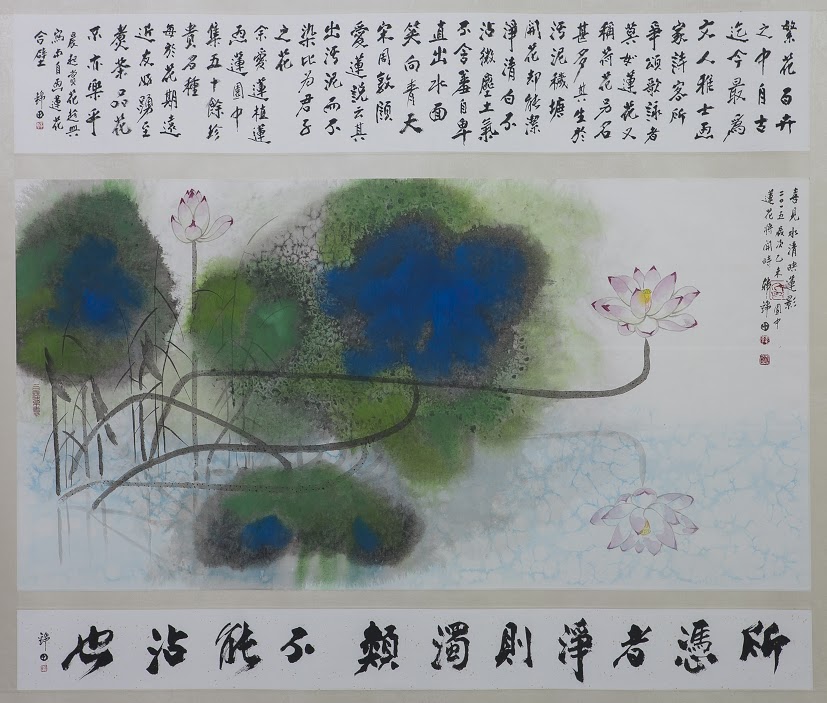 繁花百卉
之中自古
迄今最為
文人雅士画
家詩客所
爭頌歌詠者
莫如蓮花又
稱荷花為名
甚多其生於
污泥穢塘
開花却能潔
淨清白不
沾微塵土氣
不含羞自卑
直出水面
笑向青天
宋周敦頤
愛蓮說云其
出污泥而不
染比为君子
之花
余愛蓮植蓮
西蓮園中
集五十餘珍
貴名種
每於花期遠
近友好踴至
賞茶品花
不亦樂乎
晨起賞花趁興
自画蓮花
合璧
喜見水清映蓮影
歲次乙未 園中
蓮花將開時
所憑者淨則濁類不能沾也